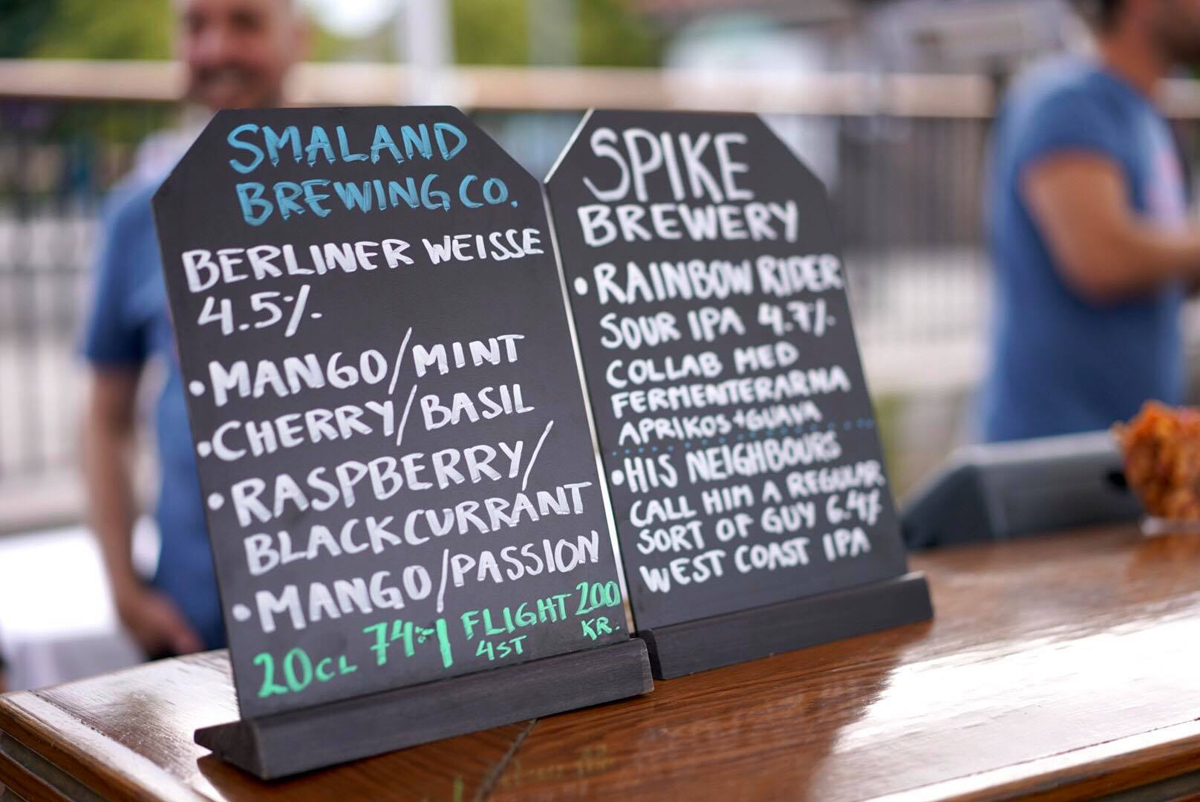 SMALAND
BREWING CO.
BERLINER WEISSE
4.5%
• MANGO/MINT
• CHERRY/BASIL
• RASPBERRY/
BLACKCURRANT
• MANGO/PASSION
20CL 74:- | FLIGHT 200
4ST KR.
SPIKE
BREWERY
• RAINBOW RIDER
SOUR IPA 4.7%
COLLAB MED
FERMENTERARNA
APRIKOS + GUAVA
• HIS NEIGHBOURS
CALL HIM A REGULAR
SORT OF GUY 6.4%
WEST COAST IPA